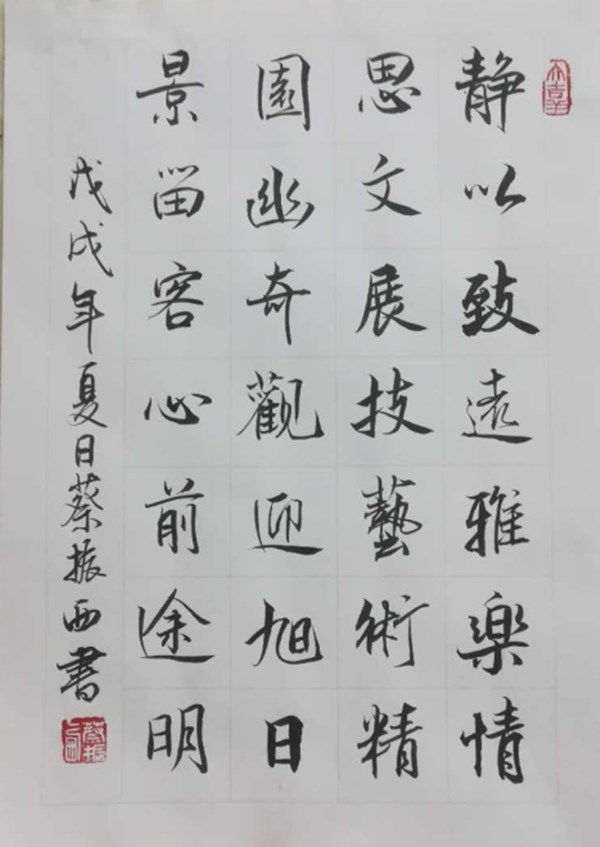 静以致遠雅樂情
思文展技藝術精
園幽奇觀迎旭日
景留客心前途明
戊戌年夏日蔡振西書